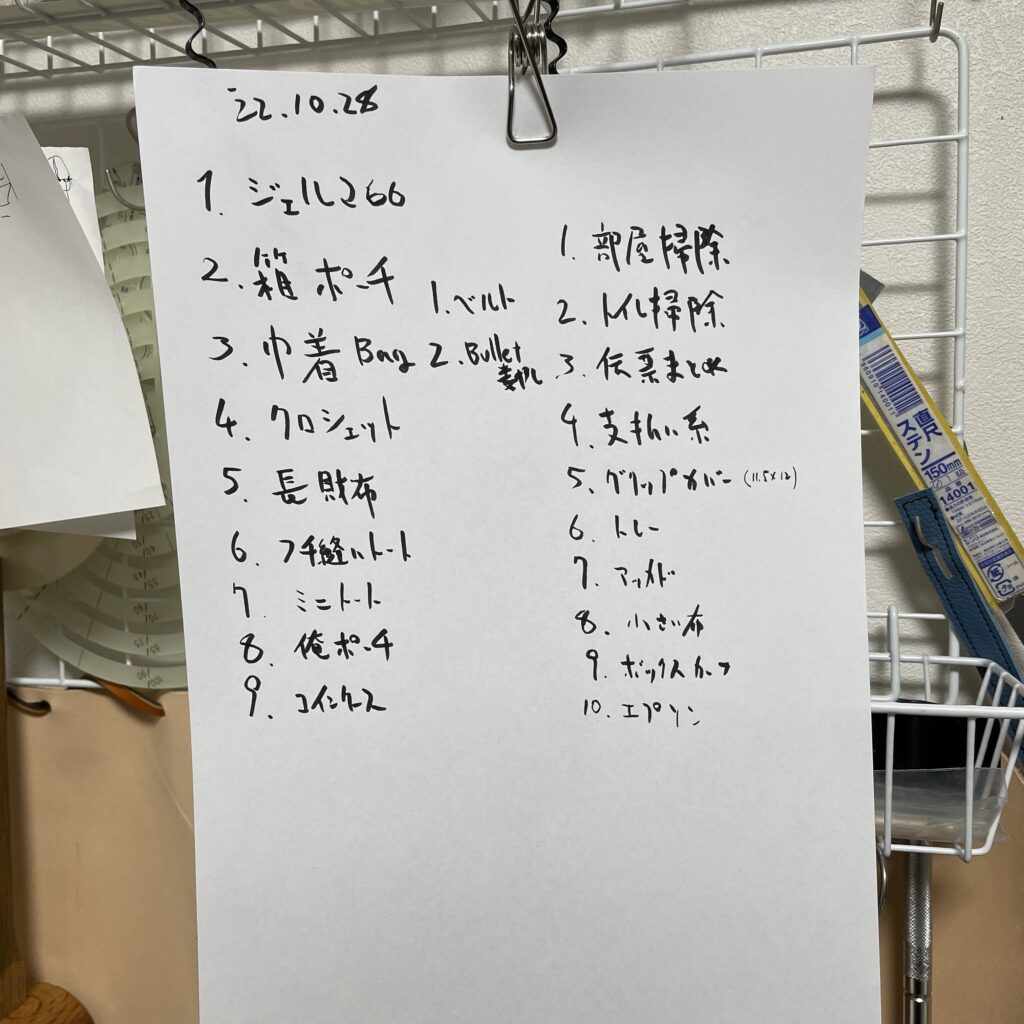 '22.10.28
1. ジェル266
2. 箱ポーチ
3. 巾着Bag
4. クロシェット
5. 長財布
6. フ手縫いトート
7. ミニトート
8. 俺ポーチ
9. コインケース
1. ベルト
2. Bullet
1. 部屋掃除
2. トイレ掃除
3. 伝票まとめ
4. 支払い系
5. グリップカバー (11.5×12)
6. トレー
7.
8. 小さい布
9. ボックス
10. エプロン
直尺
ステン
150mm
品番
14001
4960910140011